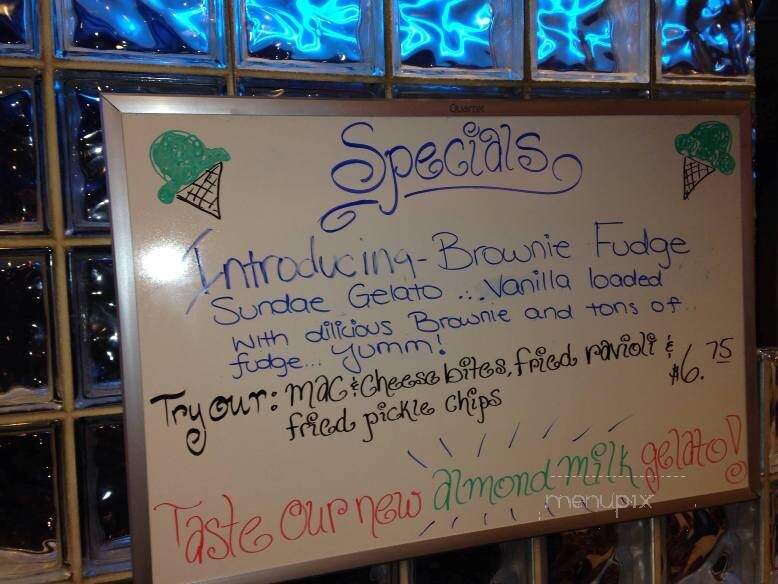 Quartet
Specials
Introducing- Brownie Fudge
Sundae Gelato ... Vanilla loaded
with dilicious Brownie and tons of..
fudge... yumm!
Try our: mac & cheese bites, fried ravioli &
fried pickle chips
$6.75
Taste our new almond milk gelato!
menupix